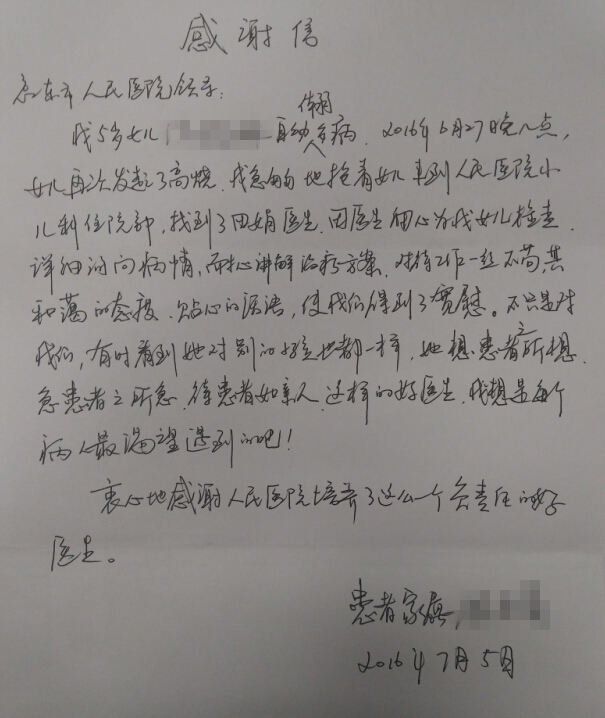 感谢信
人民医院领导:
我5岁女儿 自幼体弱多病,2016年6月27日晚八点,
女儿再次发起了高烧,我急匆匆地抱着女儿来到人民医院小
儿科住院部,找到了田娟医生,田医生细心为我女儿检查.
详细询问病情,耐心讲解治疗方案,对待工作一丝不苟,其
和蔼的态度、贴心的话语,使我们得到了宽慰。不只是对
我们,有时看到她对别的好也都一样,她想患者之所想.
急患者之所急.待患者如亲人.这样的好医生,我想是每个
病人最渴望遇到的吧!
衷心地感谢人民医院培养了这么一个负责任的好
医生。
患者家属,
2016年7月5日